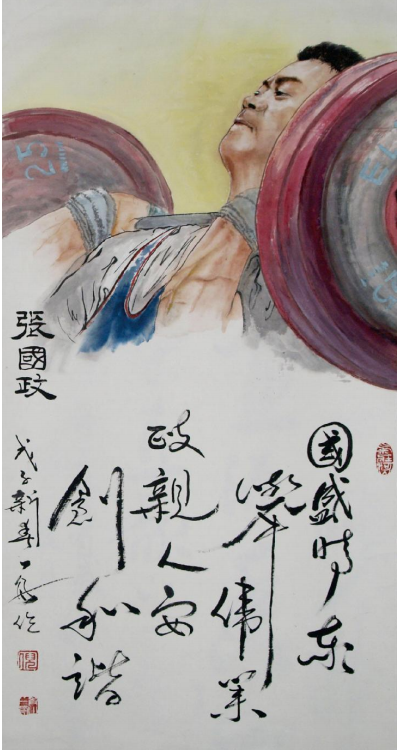 國盛時
舉偉業
政親人安
創和諧
張國政
戊子新春一
作
25